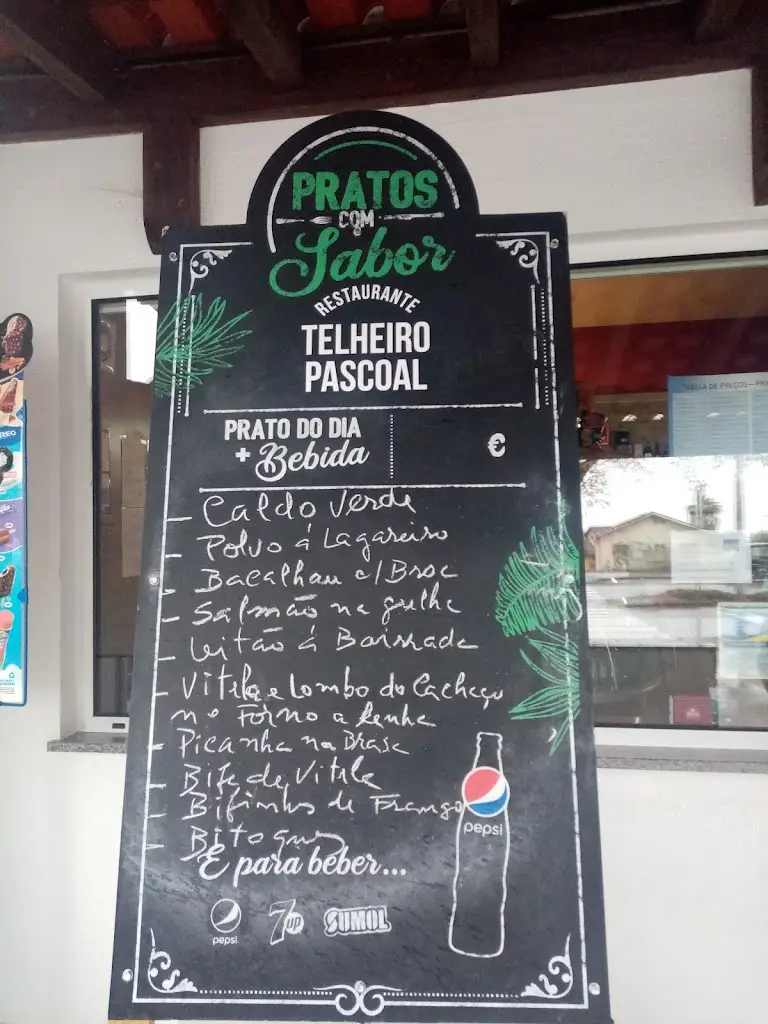 PRATOS
COM
Sabor
RESTAURANTE
TELHEIRO
PASCOAL
PRATO DO DIA
+ Bebida
€
- Caldo Verde
- Polvo á Lagareiro
- Bacalhau c/ Broc
- Salmão na grelha
- Leitão á Bairrada
- Vitela e Lombo do Cachaço
no Forno a Lenha
- Picanha na Brasa
- Bife de Vitela
- Bifinhos de Frango
- Bitoque
E para beber...
pepsi
7up
SUMOL
pepsi
TABELA DE PREÇOS